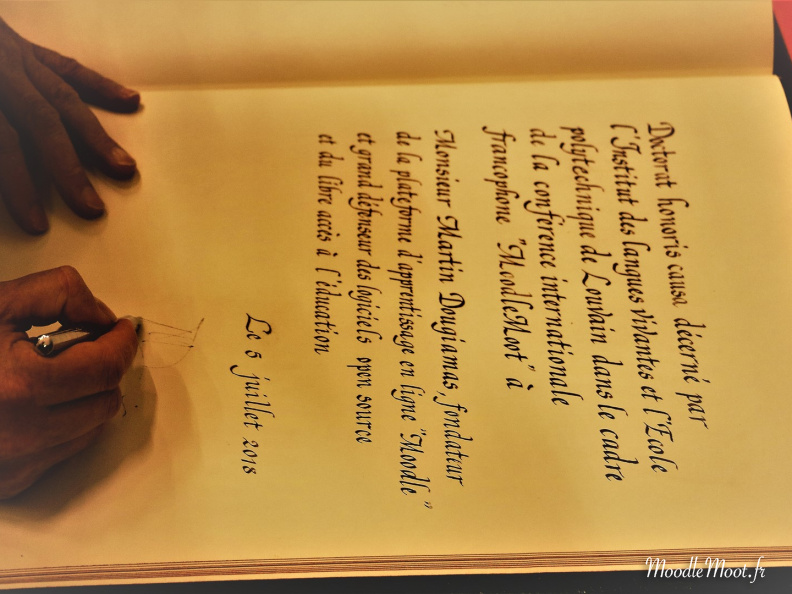 Doctorat honoris causa décerné par
l'Institut des langues vivantes et l'Ecole
polytechnique de Louvain dans le cadre
de la conférence internationale
francophone "MoodleMoot" à
Monsieur Martin Dougiamas, fondateur
de la plateforme d'apprentissage en ligne "Moodle"
et grand défenseur des logiciels open source
et du libre accès à l'éducation
Le 5 juillet 2018
MoodleMoot.fr